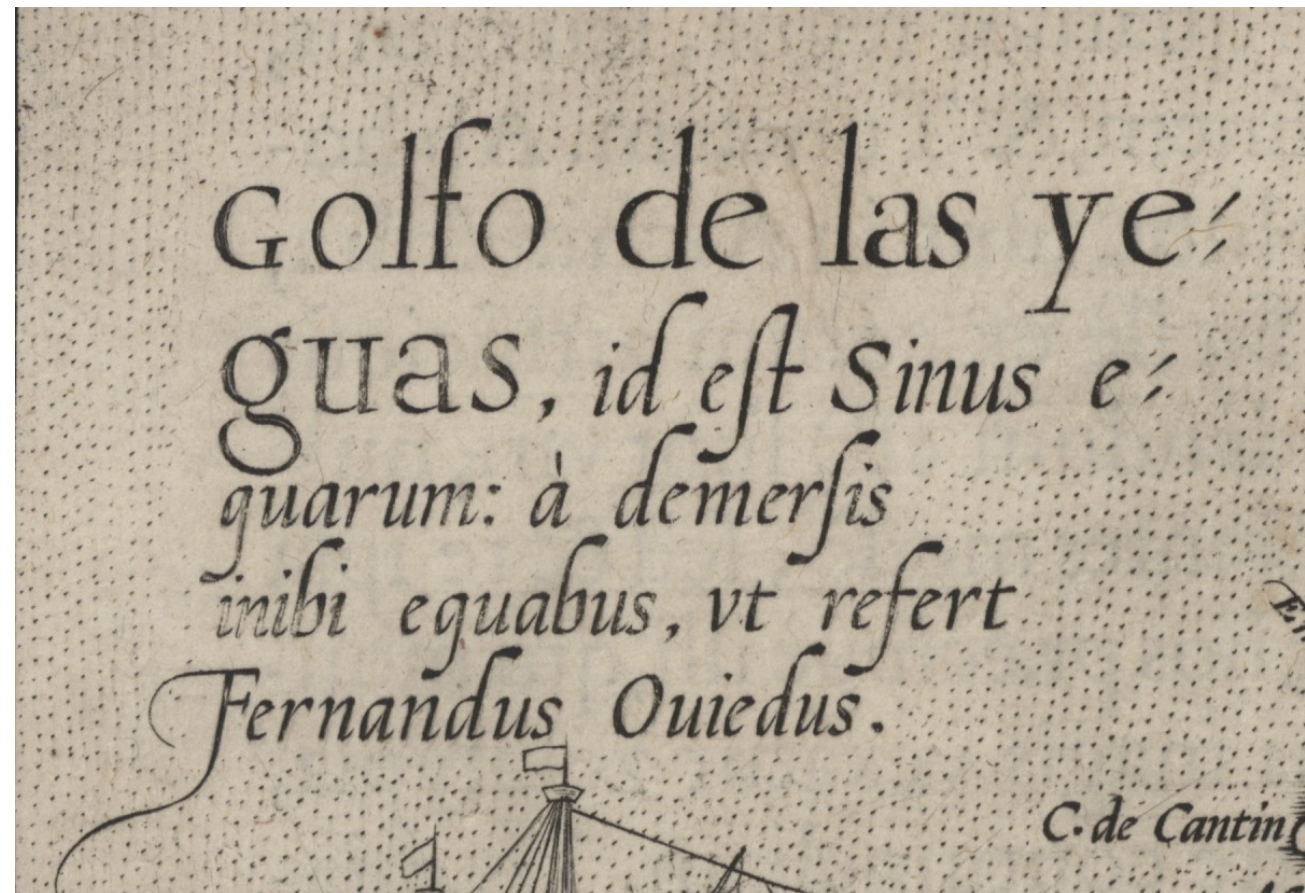 Golfo de las ye⸗
guas, id eſt Sinus e⸗
quarum: à demerſis
inibi equabus, vt refert
Fernandus Ouiedus.
C. de Cantin